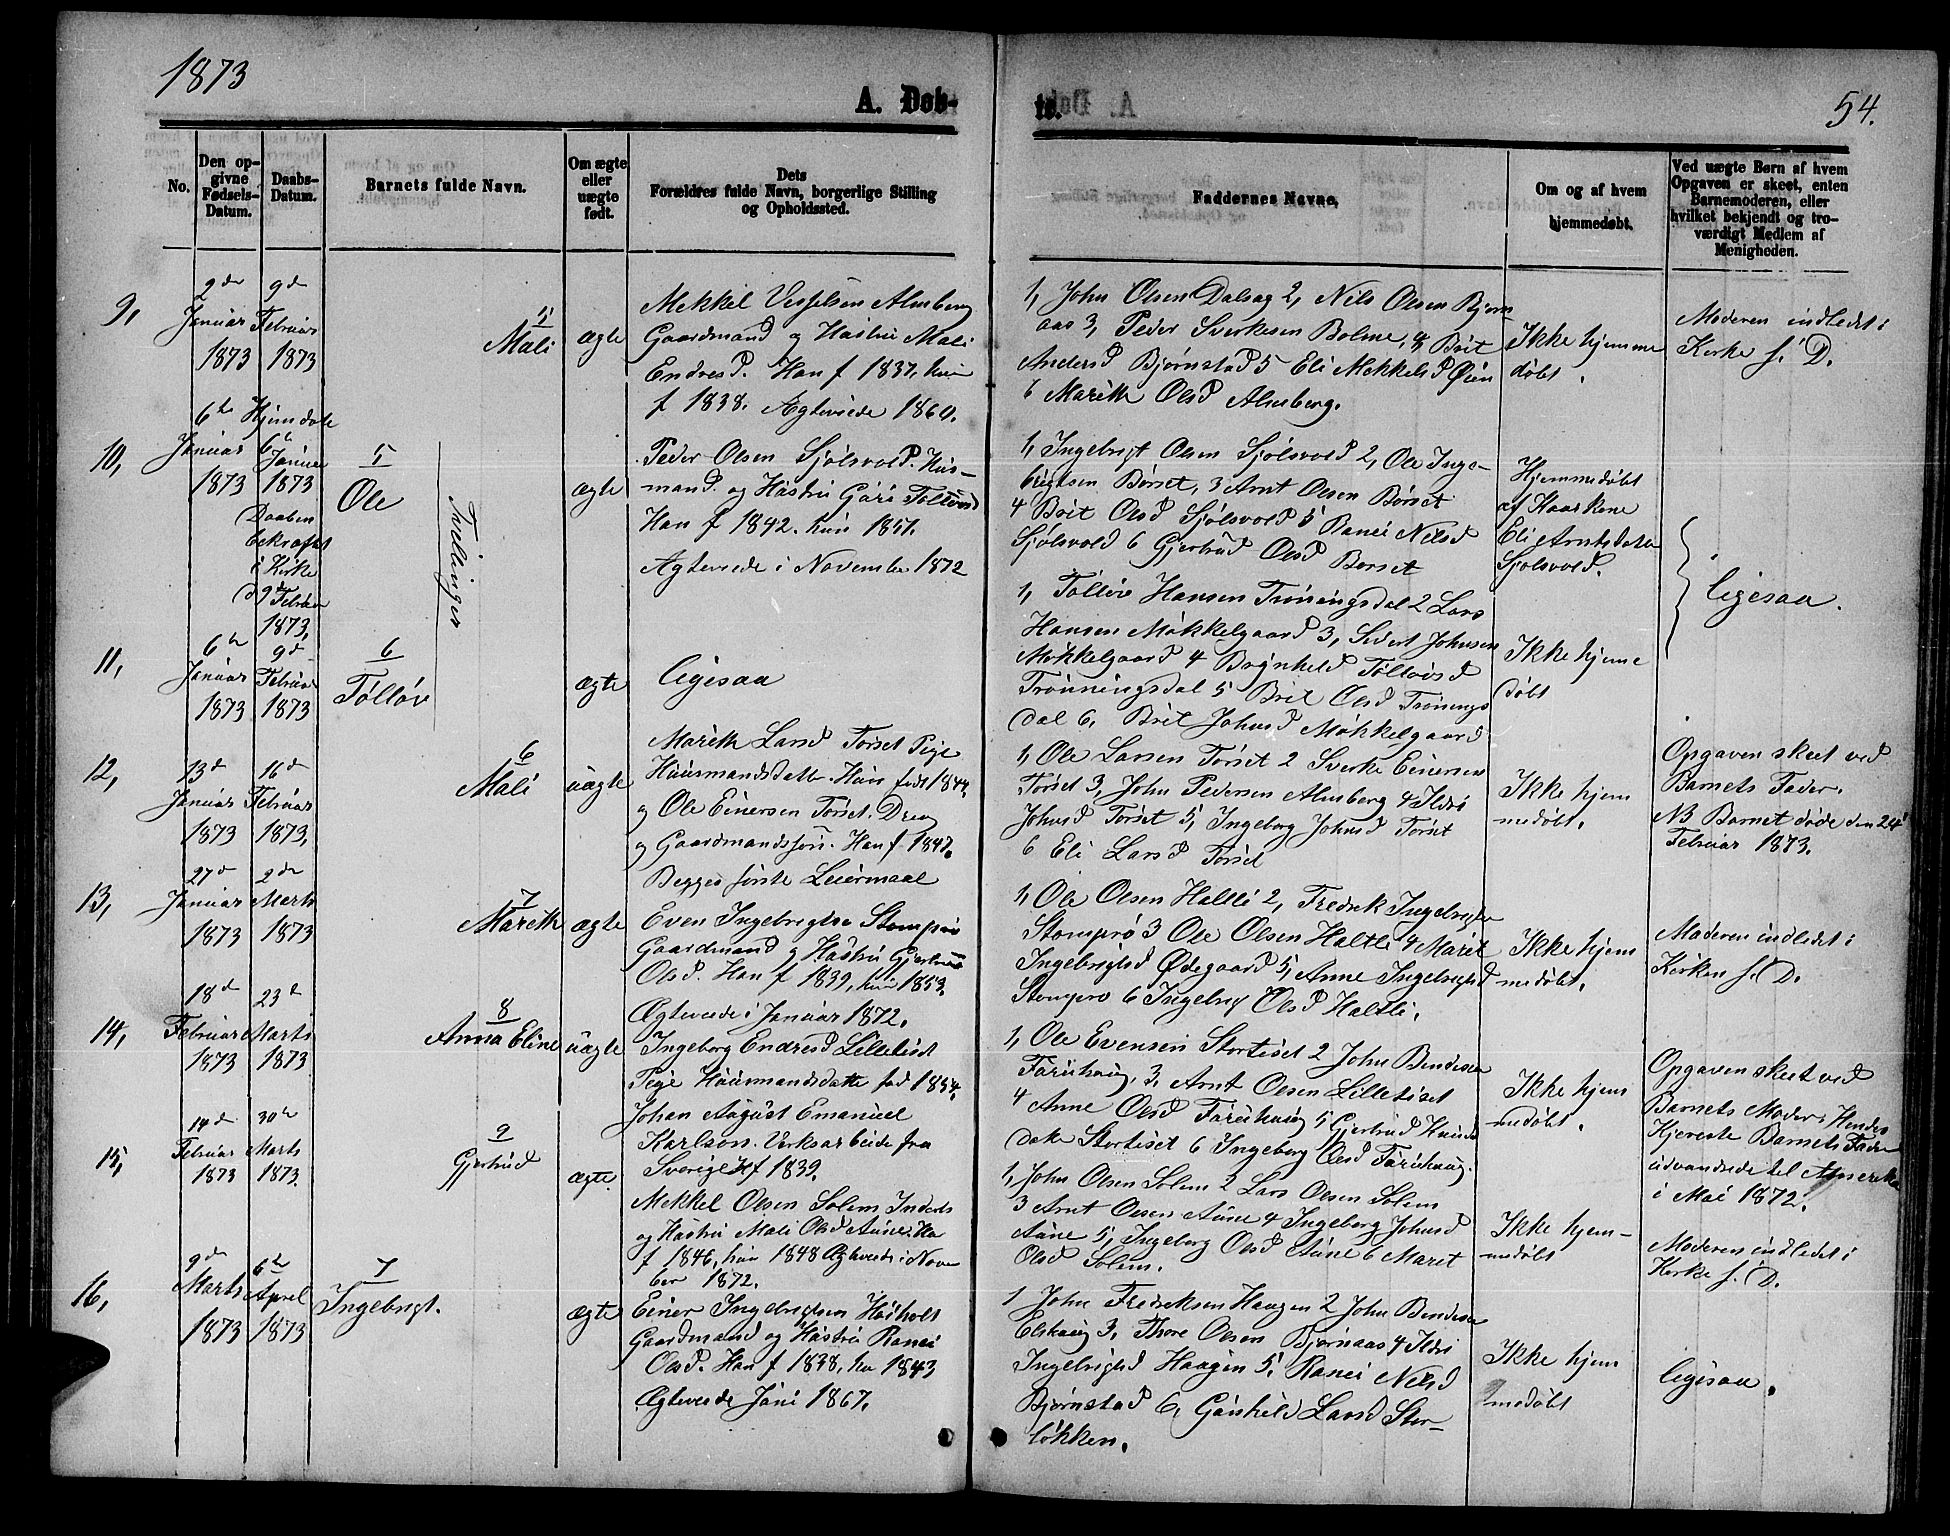 1873
A. Døb-
te.
54.
No.
Den op-
givne
Fødsels-
Datum.
Daabs-
Datum.
Barnets fulde Navn.
Om ægte
eller
uægte
født.
Dets
Forældres fulde Navn, borgerlige Stilling
og Opholdssted.
Faddernes Navne.
Om og af hvem
hjemmedøbt.
Ved uægte Børn af hvem
Opgaven er skeet, enten
Barnemoderen, eller
hvilket bekjendt og tro-
værdigt Medlem af
Menigheden.
9,
9de
Januar
1873
9de
Februar
1873
5
Mali
ægte
Mekkel Vesselsen Almberg
Gaardmand og Hustru Mali
Endresd. Han f 1837, hun
f 1838. Ægteviede 1860.
1, John Olsen Dalsag 2, Nils Olsen Bjørn-
aas 3, Peder Sverkesen Bolme, 4 Brit
Andersd Bjørnstad 5 Eli Mekkelsd Øien
6 Marith Olsd Almberg.
Ikke hjemme
døbt.
Moderen indledet i
Kirke s. D.
10,
6te
Januar
1873
Hjemdøbt
6te
Januar
1873
Daaben
bekræftet
i Kirke
d 9de Februar
1873,
5
Ole
Tvillinger
ægte
Peder Olsen Sjølsvold. Hus-
mand. og Hustru Guri Tølløvsd
Han f 1842. hun 1851.
Ægteviede i November 1872
1, Ingebrigt Olsen Sjølsvold 2, Ole Inge-
brigtsen Børset, 3 Arnt Olsen Børset
4 Brit Olsd Sjølsvold 5 Ranei Nilsd
Sjølsvold 6 Gjertrud Olsd Børset
Hjemmedøbt
af Kaarkone
Eli Arntsdatter
Sjølsvold.
ligesaa.
11,
6te
Januar
1873
9de
Februar
1873
6
Tølløv
ægte
ligesaa
1, Tølløv Hansen Trøningsdal 2 Lars
Hansen Møkkelgaard 3, Sivert Johnsen
Møkkelgaard 4 Brynhild Tølløvsd
Trønningsdal 5 Brit Olsd Trønings
dal 6, Brit Johnsd Møkkelgaard
Ikke hjeme
døbt
12,
13de
Januar
1873
16de
Februar
1873,
6
Mali
uægte
Marith Larsd Torset Pige
Huusmandsdatter. Hun født 1844,
og Ole Einersen Torset. Dreng
og Gaardmandssøn. Han f 1847.
Begges første Leiermaal
1, Ole Larsen Torset 2 Sverke Einersen
Torset 3, John Pedersen Almberg 4 Ildri
Johnsd Torset 5, Ingeborg Johnsd Torset
6 Eli Larsd Torset
Ikke hjem
medøbt.
Opgaven skeet ved
Barnets Fader.
NB Barnet døde den 24'
Februar 1873.
13,
27de
Januar
1873
2den
Marts
1873
7
Marith
ægte
Even Ingebrigtsen Stomprø
Gaardmand og Hustru Gjertrud
Olsd. Han f 1839, hun 1853.
Ægteviede i Januar 1872.
1, Ole Olsen Haltli 2, Fredrik Ingebrigtsen
Stomprø 3 Ole Olsen Haltli 4 Marit
Ingebrigtsd Ødegaard 5, Anne Ingebrigtsd
Stomprø 6 Ingebrig Olsd Haltli.
Ikke hjem
medøbt.
Moderen indledet i
Kirken s. D.
14,
18de
Februar
1873
23de
Marts
1873
8
Anna Eline
uægte
Ingeborg Endresd Lilletiset
Pige Huusmandsdatter fød 1854.
Johan August Emanuel
Karlson. Verksarbeider fra
Sverige f 1839.
1, Ole Evensen Stortiset 2 John Bendixen
Faruhaug, 3, Arnt Olsen Lilletiset
4 Anne Olsd Faruhaug 5 Gjertrud Knuds
datr Stortiset 6 Ingeborg Olsd Faruhaug.
Ikke hjem
medøbt.
Opgaven skeet ved
Barnets Moder. Hendes
Kjæreste Barnets Fader
udvandrede til Amerika
i Mai 1872.
15,
14de
Februar
1873
30te
Marts
1873.
9
Gjertrud
ægte.
Mekkel Olsen Solem Inderst
og Hustru Mali Olsd Aune. Han
f 1846, hun 1848 Ægteviede i Novem
ber 1872.
1, John Olsen Solem 2 Lars Olsen Solem
3 Arnt Olsen Aune 4 Ingeborg Johnsd
Aune 5, Ingeborg Olsd Aune 6 Maret
Olsd Solem.
Ikke hjem-
medøbt
Moderen indledet i
Kirke s. D.
16,
9de
Marts
1873
6te
April
1873
7
Ingebrigt.
ægte
Einer Ingebrigtsen Husholt
Gaardmand og Hustru Ranei
Olsd. Han f 1838, hun 1843
Ægteviede Juni 1867.
1 John Fredriksen Haugen 2 John Bendixen
Elshaug 3, Thore Olsen Bjørnaas 4 Ildri
Ingebrigtsd Haugen 5, Ranei Nilsd
Bjørnstad 6, Gunhild Larsd Stor-
løkken.
Ikke hjem
medøbt
ligesaa.